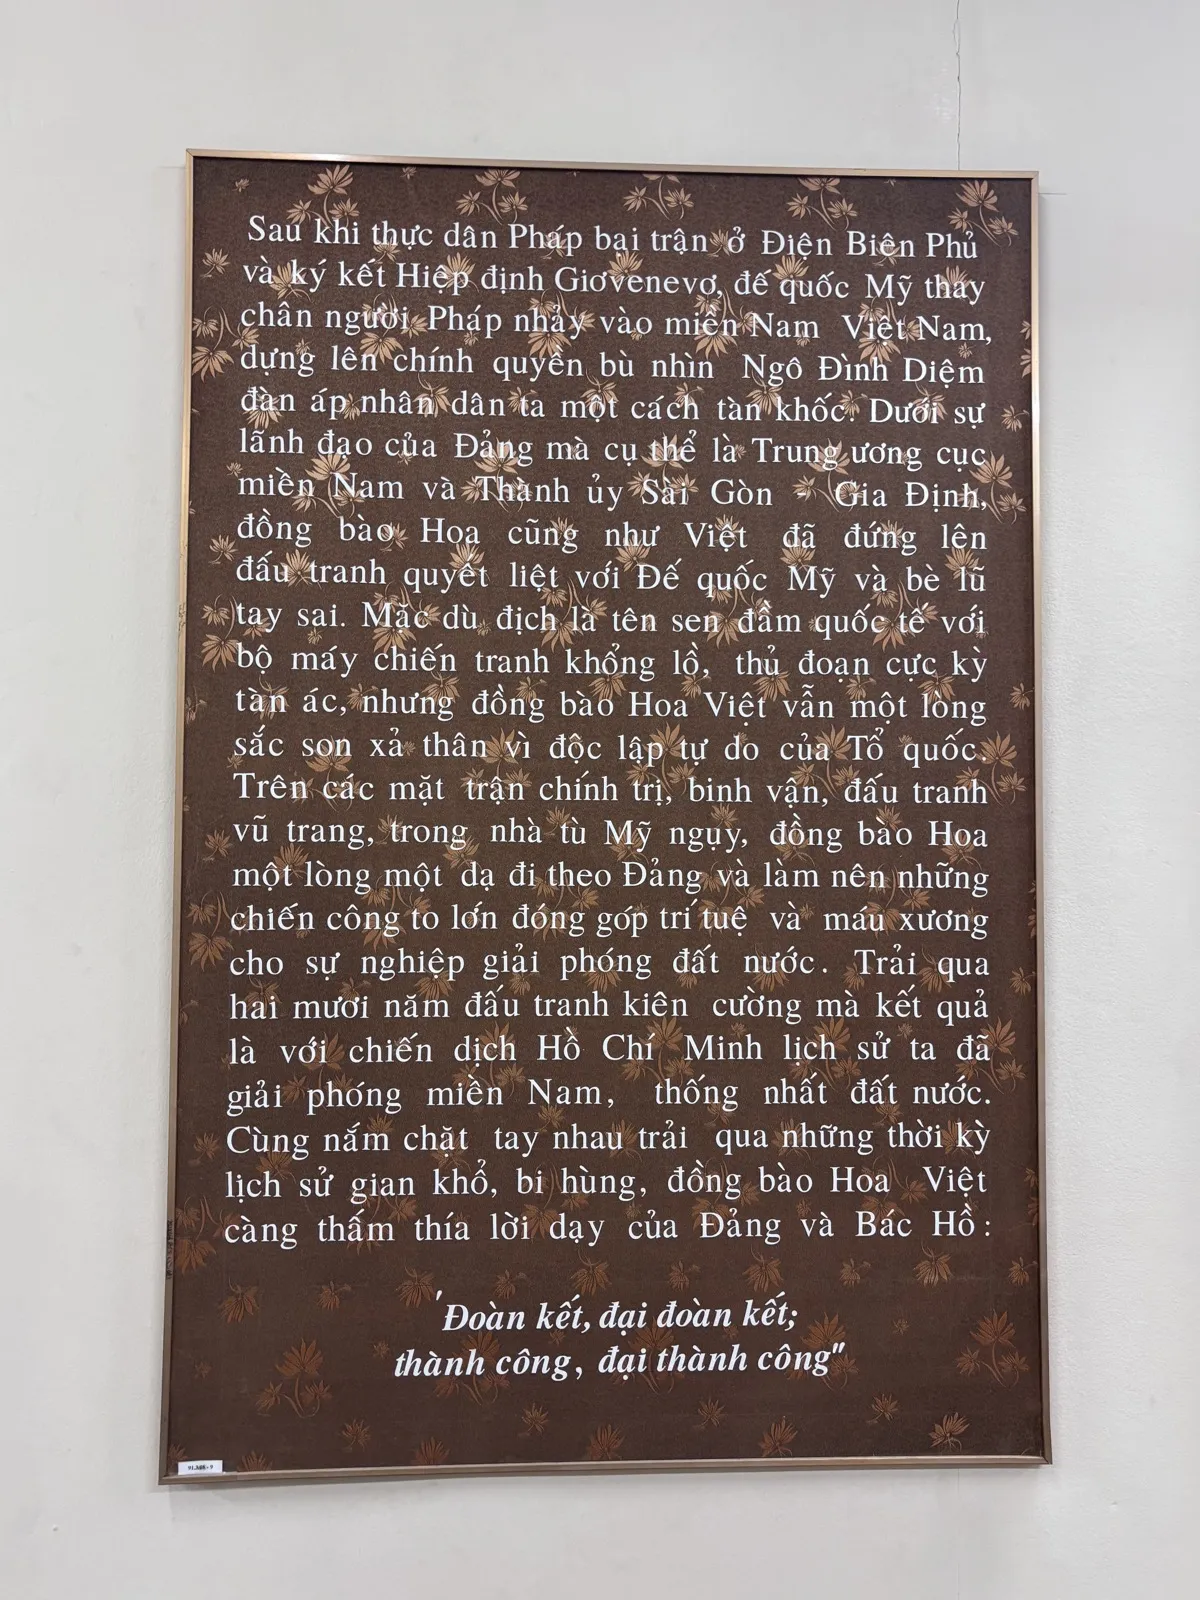 Sau khi thực dân Pháp bại trận ở Điện Biên Phủ
và ký kết Hiệp định Giơvenevơ, đế quốc Mỹ thay
chân người Pháp nhảy vào miền Nam Việt Nam,
dựng lên chính quyền bù nhìn Ngô Đình Diệm
đàn áp nhân dân ta một cách tàn khốc. Dưới sự
lãnh đạo của Đảng mà cụ thể là Trung ương cục
miền Nam và Thành ủy Sài Gòn - Gia Định,
đồng bào Hoa cũng như Việt đã đứng lên
đấu tranh quyết liệt với Đế quốc Mỹ và bè lũ
tay sai. Mặc dù địch là tên sen đầm quốc tế với
bộ máy chiến tranh khổng lồ, thủ đoạn cực kỳ
tàn ác, nhưng đồng bào Hoa Việt vẫn một lòng
sắc son xả thân vì độc lập tự do của Tổ quốc.
Trên các mặt trận chính trị, binh vận, đấu tranh
vũ trang, trong nhà tù Mỹ ngụy, đồng bào Hoa
một lòng một dạ đi theo Đảng và làm nên những
chiến công to lớn đóng góp trí tuệ và máu xương
cho sự nghiệp giải phóng đất nước. Trải qua
hai mươi năm đấu tranh kiên cường mà kết quả
là với chiến dịch Hồ Chí Minh lịch sử ta đã
giải phóng miền Nam, thống nhất đất nước.
Cùng nắm chặt tay nhau trải qua những thời kỳ
lịch sử gian khổ, bi hùng, đồng bào Hoa Việt
càng thấm thía lời dạy của Đảng và Bác Hồ:
'Đoàn kết, đại đoàn kết;
thành công, đại thành công"